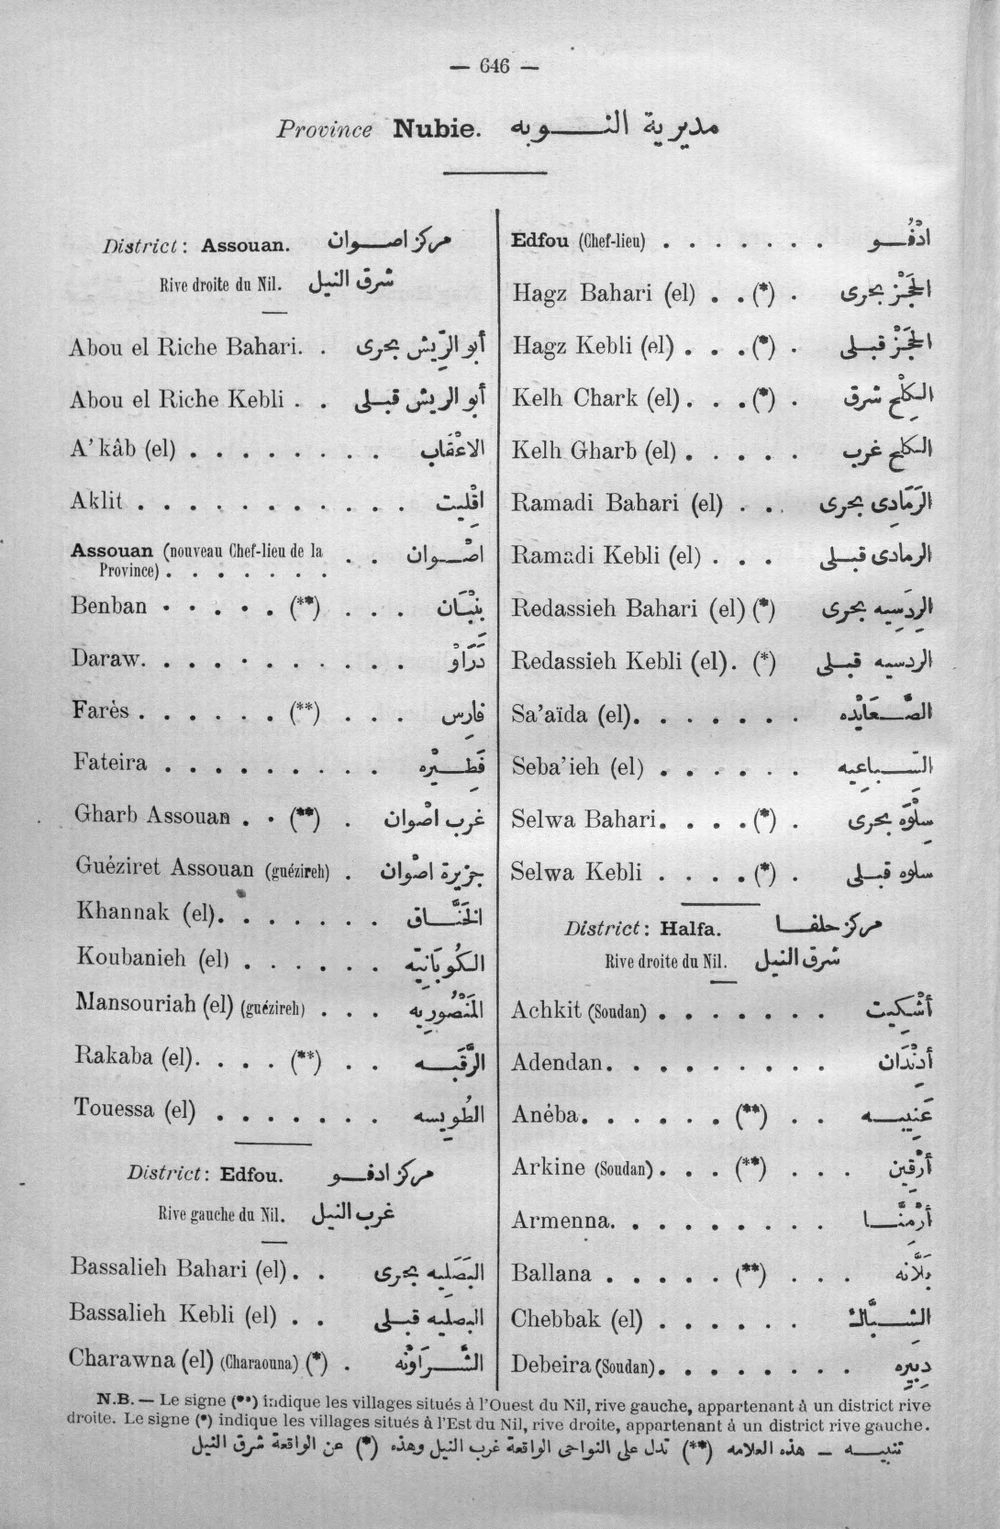 — 646 —
Province Nubie. مديرية النـــوبه
District : Assouan. مركز اصــوان
Rive droite du Nil. شرق النيل
Abou el Riche Bahari. . أبو الرِّيش بحرى
Abou el Riche Kebli . . أبو الريش قبـلى
A’kâb (el) . . . . . . . . الاعْقَاب
Aklit . . . . . . . . . . . اقْلِيت
Assouan (nouveau Chef-lieu de la . . اصْــوان
Province) . . . . . . .
Benban . . . . . (**) . . . بَنْبَان
Daraw. . . . . . . . . . . دَرَاوْ
Farès . . . . . . (**) . . . فارِس
Fateira . . . . . . . . . فَطِــيْرَه
Gharb Assouan . . (**) . غرب اصْوان
Guéziret Assouan (guézireh) . جزيرة اصْوان
Khannak (el). . . . . . . الخَنَّــاق
Koubanieh (el) . . . . . . الكُوبَانِيَّه
Mansouriah (el) (guézireh) . . . المَنْصُورِيَه
Rakaba (el). . . . (**) . . الرَّقَبــه
Touessa (el) . . . . . . . الطُوِيسه
District : Edfou. مركز ادفــو
Rive gauche du Nil. غرب النيل
Bassalieh Bahari (el) . . البَصَلِيه بحرى
Bassalieh Kebli (el) . . البصليه قبـلى
Charawna (el) (Charaouna) (*) . الشَّــرَاوْنَه
Edfou (Chef-lieu) . . . . . . . ادْفُــو
Hagz Bahari (el) . . (*) . الحَجْز بحرى
Hagz Kebli (el) . . . (*) . الحَجْز قبـلى
Kelh Chark (el) . . . (*) . الكِلْح شرق
Kelh Gharb (el) . . . . . الكلح غرب
Ramadi Bahari (el) . . . الرَمَادِى بحرى
Ramadi Kebli (el) . . . الرمادى قبـلى
Redassieh Bahari (el) (*) الرِدَسِيه بحرى
Redassieh Kebli (el) . (*) الردسيه قبـلى
Sa’aïda (el). . . . . . . الصَّــعَايْدَه
Seba’ieh (el) . . . . . . السِّــبَاعِيه
Selwa Bahari. . . . . (*) . سِلْوَه بحرى
Selwa Kebli . . . . (*) . سلوه قبـلى
District : Halfa. مركز حلفــا
Rive droite du Nil. شرق النيل
Achkit (Soudan) . . . . . . . أَشْكِيت
Adendan. . . . . . . . . أَدِنْدَان
Anéba. . . . . . (**) . . عَنِيبــه
Arkine (Soudan) . . . (**) . . . أَرْقِين
Armenna. . . . . . . . . أَرْمِنَّــا
Ballana . . . . . (**) . . . بَلَّانَه
Chebbak (el) . . . . . . الشِــبَّاك
Debeira (Soudan). . . . . . . . دِبِيرَه
N.B. — Le signe (**) indique les villages situés à l’Ouest du Nil, rive gauche, appartenant à un district rive
droite. Le signe (*) indique les villages situés à l’Est du Nil, rive droite, appartenant à un district rive gauche.
تنبيــه — هذه العلامه (**) تدل على النواحى الواقعة غرب النيل وهذه (*) عن الواقعة شرق النيل